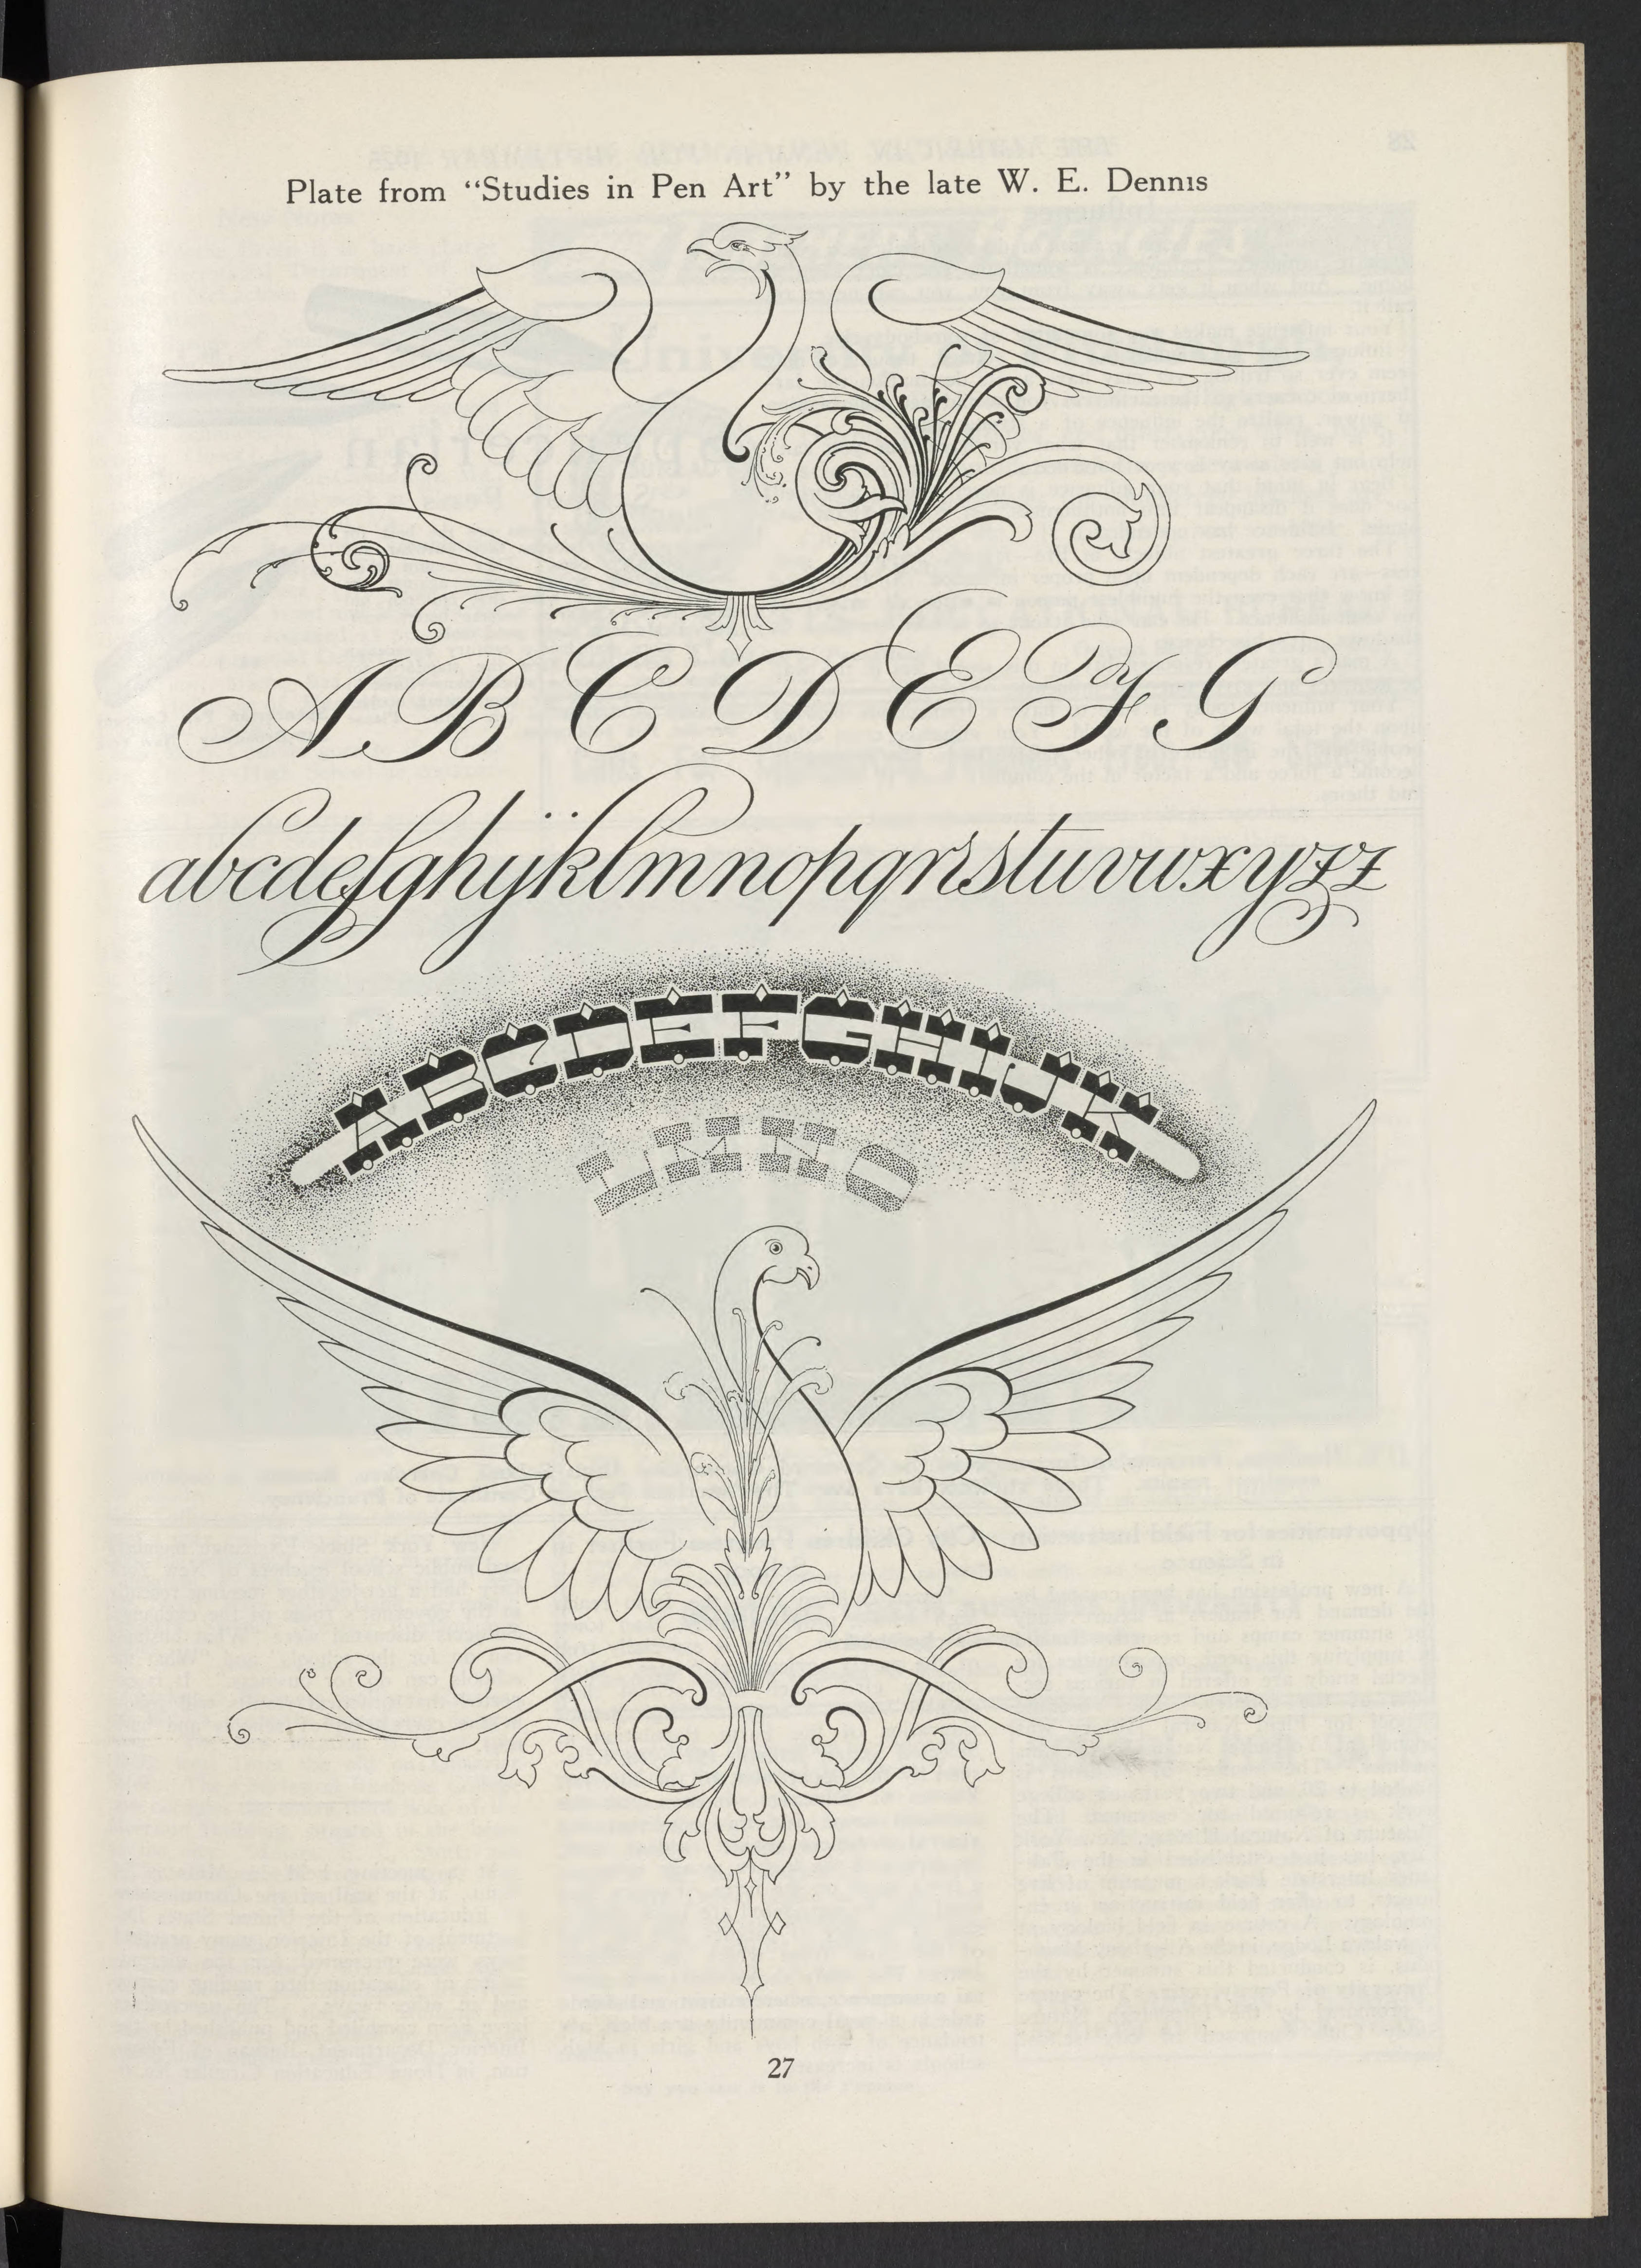 Plate from “Studies in Pen Art” by the late W. E. Dennis
A B C D E F G
abcdefghijklmnopqrsstuvwxyzz
ABCDEFGHIJK
LMNO
27